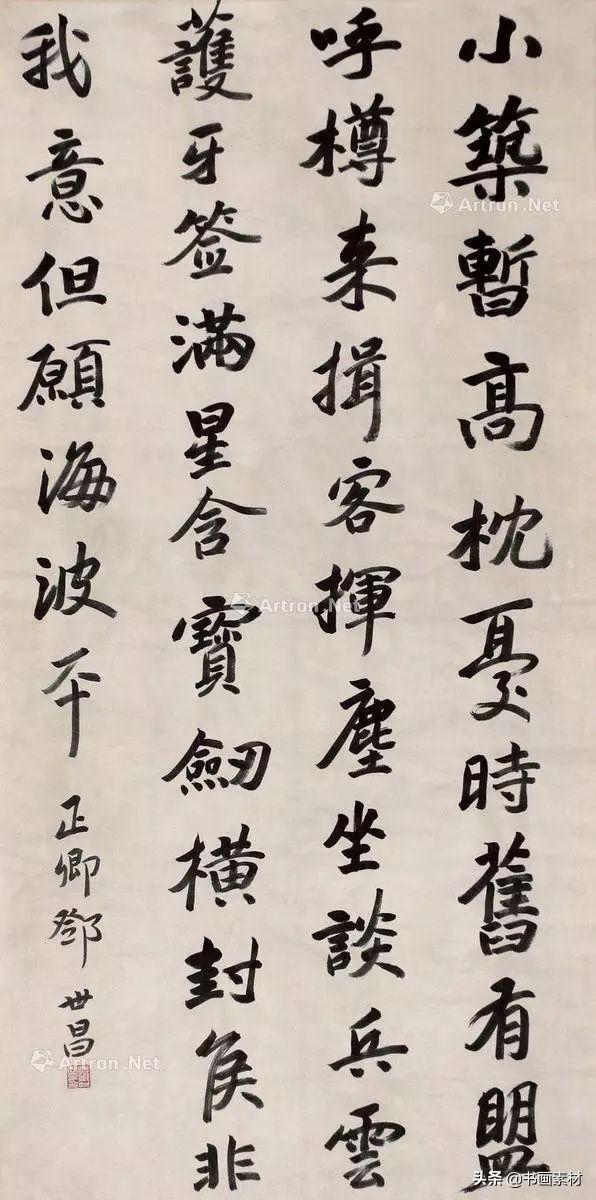 小築暫高枕憂時舊有盟
呼樽来揖客揮麈坐談兵雲
護牙簽滿星含寶劔橫封侯非
我意但願海波平
正卿鄧世昌
Artron.Net
Artron.Net
Artron.Net
头条 @书画素材